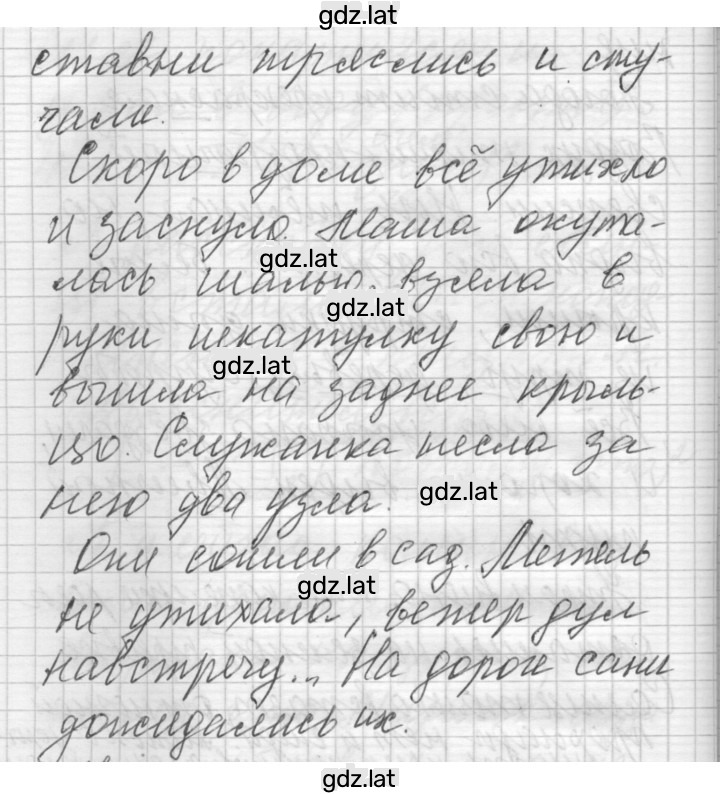 gdz.lat
ставни тряслись и сту-
чали.
Скоро в доме всё утихло
и заснуло. Маша окута-
gdz.lat
лась шалью, взяла в
gdz.lat
руки шкатулку свою и
gdz.lat
вышла на заднее крыль-
цо. Служанка несла за
gdz.lat
нею два узла.
Они сошли в сад. Метель
gdz.lat
не утихала, ветер дул
навстречу... На дороге сани
дожидались их.
gdz.lat